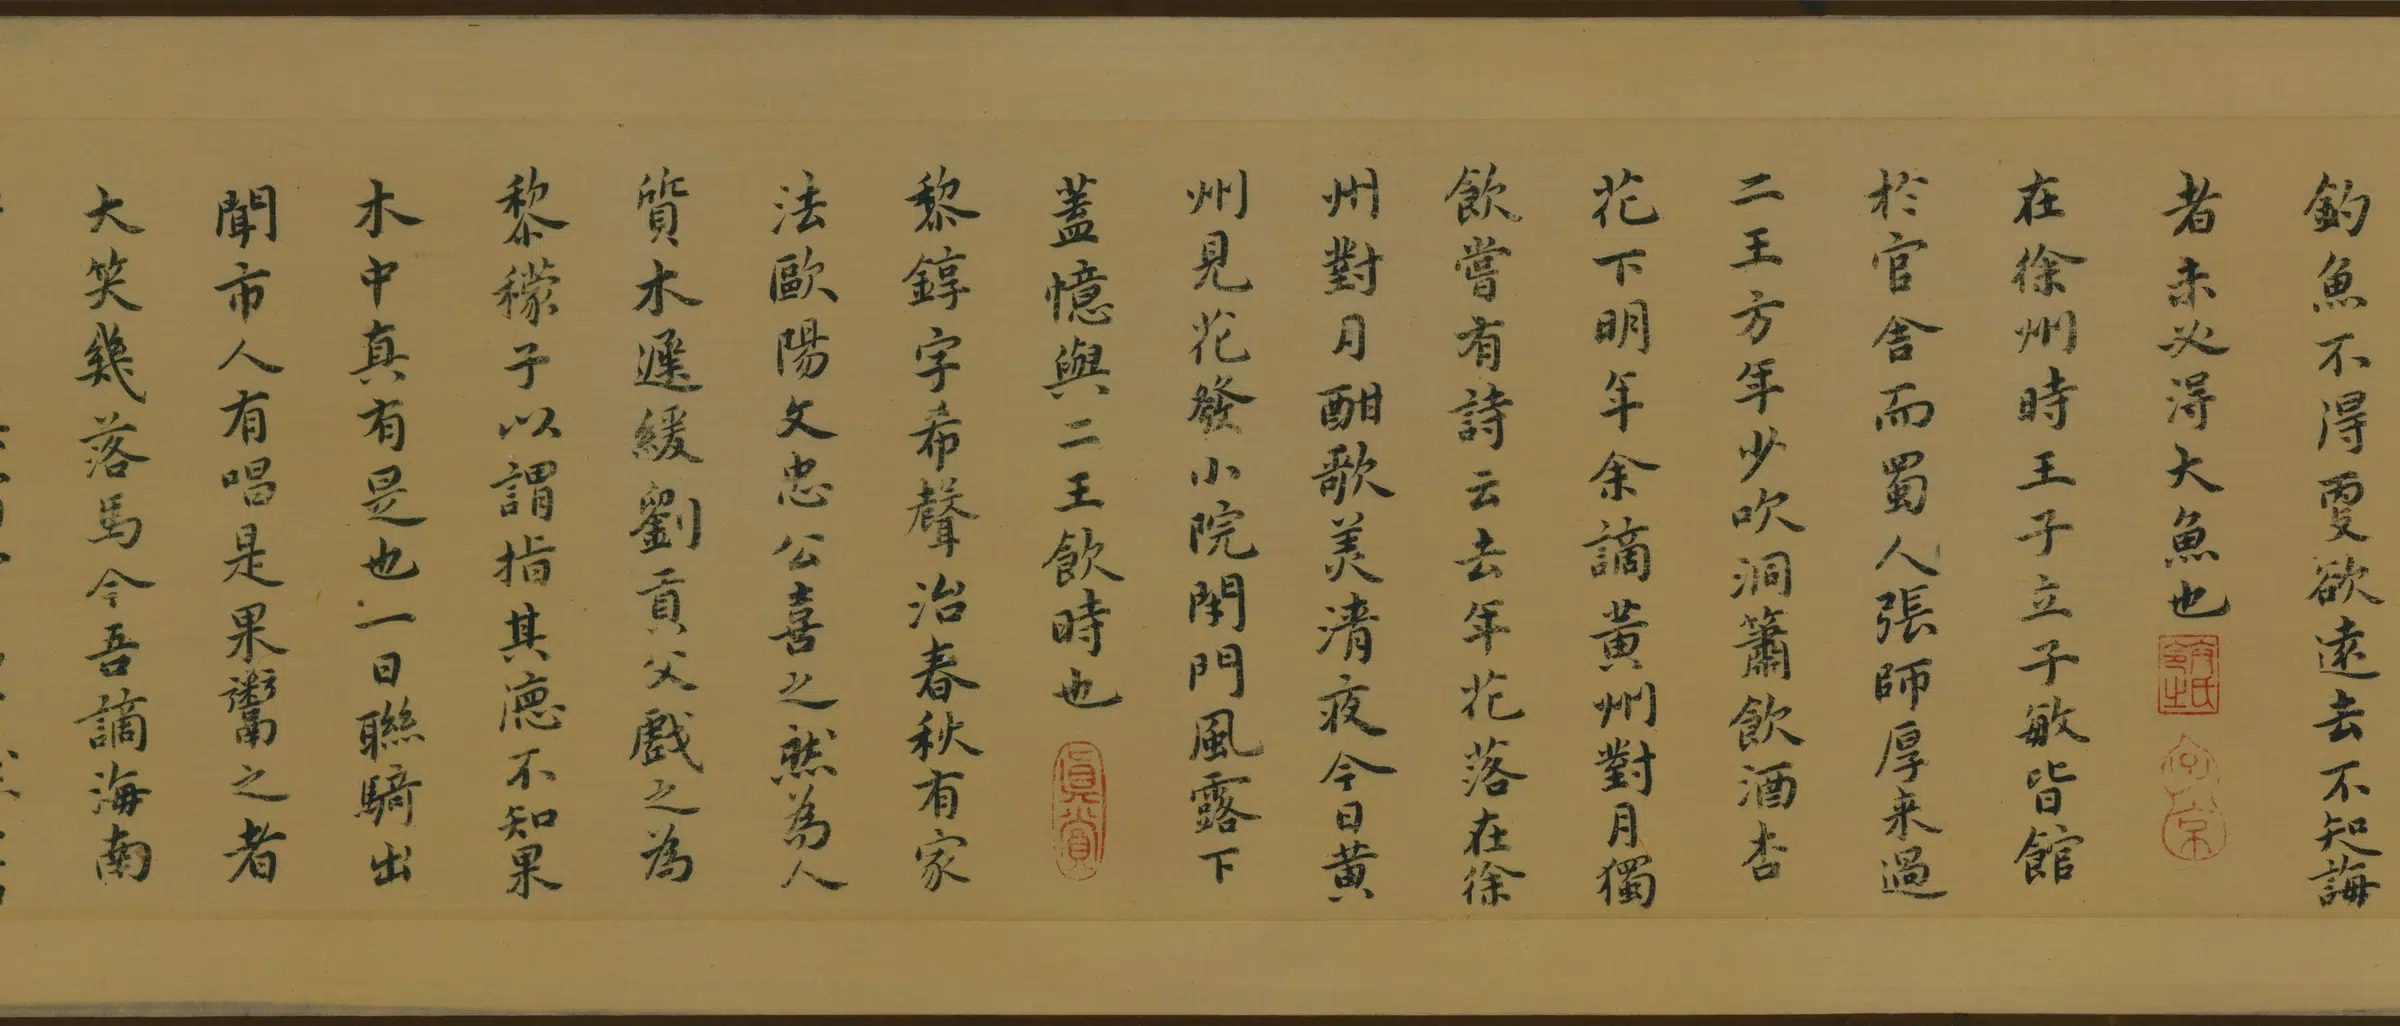 釣魚不得更欲遠去不知誨
者未必得大魚也
在徐州時王子立子敏皆館
於官舍而蜀人張師厚来過
二王方年少吹洞簫飲酒杏
花下明年余謫黄州對月獨
飲嘗有詩云去年花落在徐
州對月酣歌美清夜今日黄
州見花發小院閉門風露下
蓋憶與二王飲時也
真賞
黎錞字希聲治春秋有家
法歐陽文忠公喜之然為人
質木遲緩劉貢父戲之為
黎檬子以謂指其德不知果
木中真有是也一日聯騎出
聞市人有唱是果鬻之者
大笑幾落馬今吾謫海南